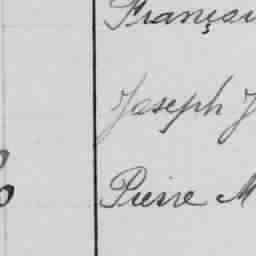 Françoi
Joseph J
Pierre M